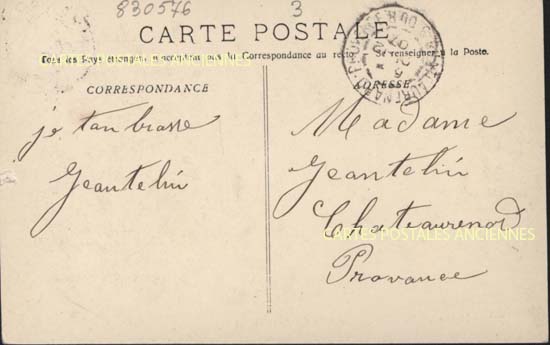 830576
3
CARTE POSTALE
CARTES POSTALES ANCIENNES
Tous les Pays étrangers n'acceptent pas la Correspondance au recto. Se renseigner à la Poste.
CORRESPONDANCE
ADRESSE
je tan brasse
Jeantelin
Madame
Jeantelin
Chateaurenard
CARTES POSTALES ANCIENNES
Provance